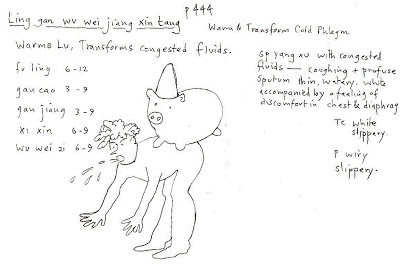 p444
Ling gan wu wei jiang xin tang
Warm & Transform Cold Phlegm
Warms Lu, Transforms congested fluids.
fu ling 6-12
gan cao 3-9
gan jiang 3-9
xi xin 6-9
wu wei zi 6-9
sp yang xu with congested
fluids — coughing + profuse
sputum thin, watery, white
accompanied by a feeling of
discomfort in chest & diaphrag
Tc white
slippery.
P wiry
slippery.